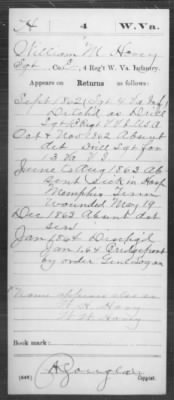 H 4 W. Va.
William M. Haney
Sgt, Co. 4 Reg't W. Va. Infantry.
Appears on
Returns
as follows:
Sept 1862
Detchd on
Oct & Nov 1862 Absent
det Drill Sgt for
13 Va V I
June & Aug 1863. Ab
sent sick in Hosp
Memphis Tenn
Wounded May 19
Dec 1863 Absent det
serv
Jan 1864 Disch'g'd
Jan 1.64 Bridgeport
by order Genl Logan
Name appears also as
Book mark:
(646)
Copyist.